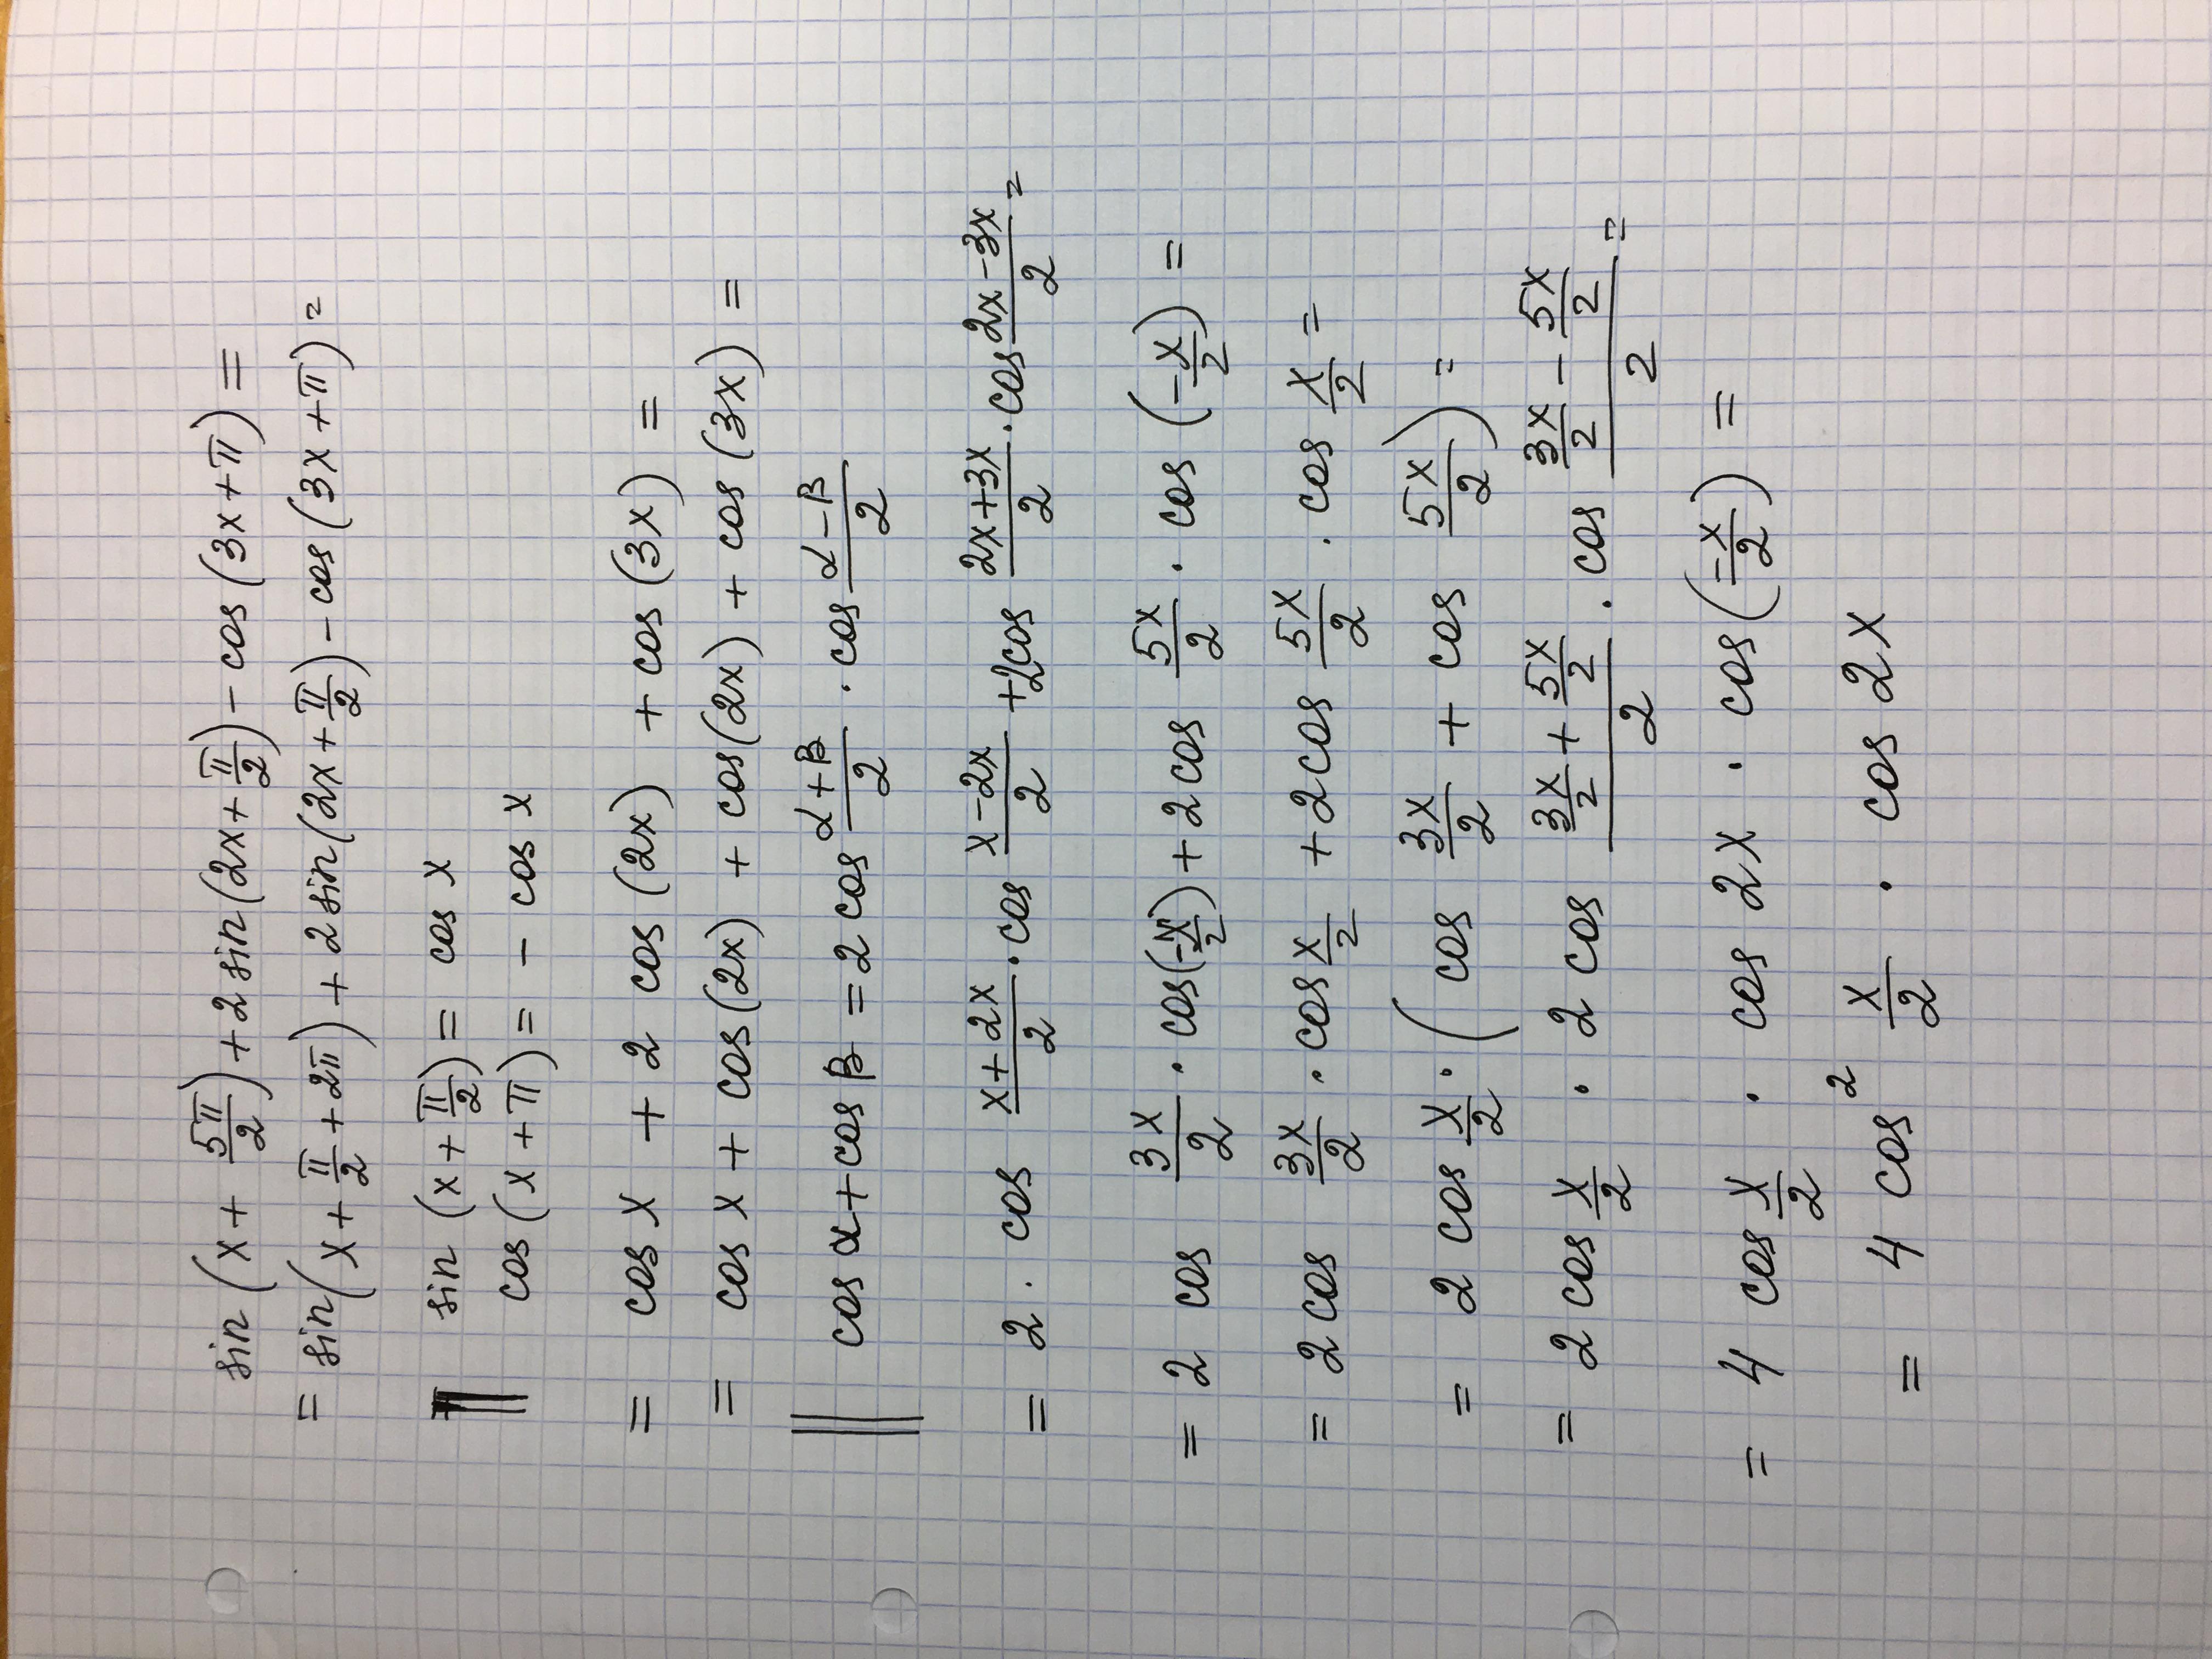 sin (x + 5π/2) + 2 sin (2x + π/2) - cos (3x + π) =
= sin (x + π/2 + 2π) + 2 sin (2x + π/2) - cos (3x + π) =
sin (x + π/2) = cos x
cos (x + π) = - cos x
= cos x + 2 cos (2x) + cos (3x) =
= cos x + cos (2x) + cos (2x) + cos (3x) =
cos α + cos β = 2 cos (α + β)/2 · cos (α - β)/2
= 2 · cos (x + 2x)/2 · cos (x - 2x)/2 + 2 cos (2x + 3x)/2 · cos (2x - 3x)/2 =
= 2 cos 3x/2 · cos (-x/2) + 2 cos 5x/2 · cos (-x/2) =
= 2 cos 3x/2 · cos x/2 + 2 cos 5x/2 · cos x/2 =
= 2 cos x/2 · (cos 3x/2 + cos 5x/2) =
= 2 cos x/2 · 2 cos (3x/2 + 5x/2)/2 · cos (3x/2 - 5x/2)/2 =
= 4 cos x/2 · cos 2x · cos (-x/2) =
= 4 cos² x/2 · cos 2x